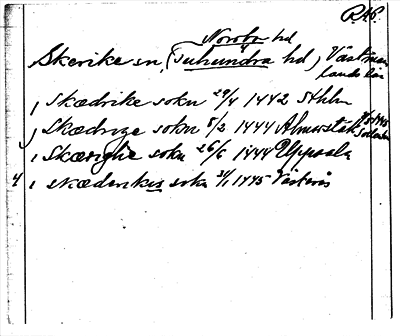 R.46.
Norrbo hd
Skerike sn, (Tuhundra hd), Västman
lands län
, Skædrike sokn 29/4 1442 Sthlm
, Skædrige sokn 5/2 1444 Almerstäk
, Skærighe sokn 26/6 1444 Uppsala
4 , skædrikis sokn 31/1 1445 Västerås